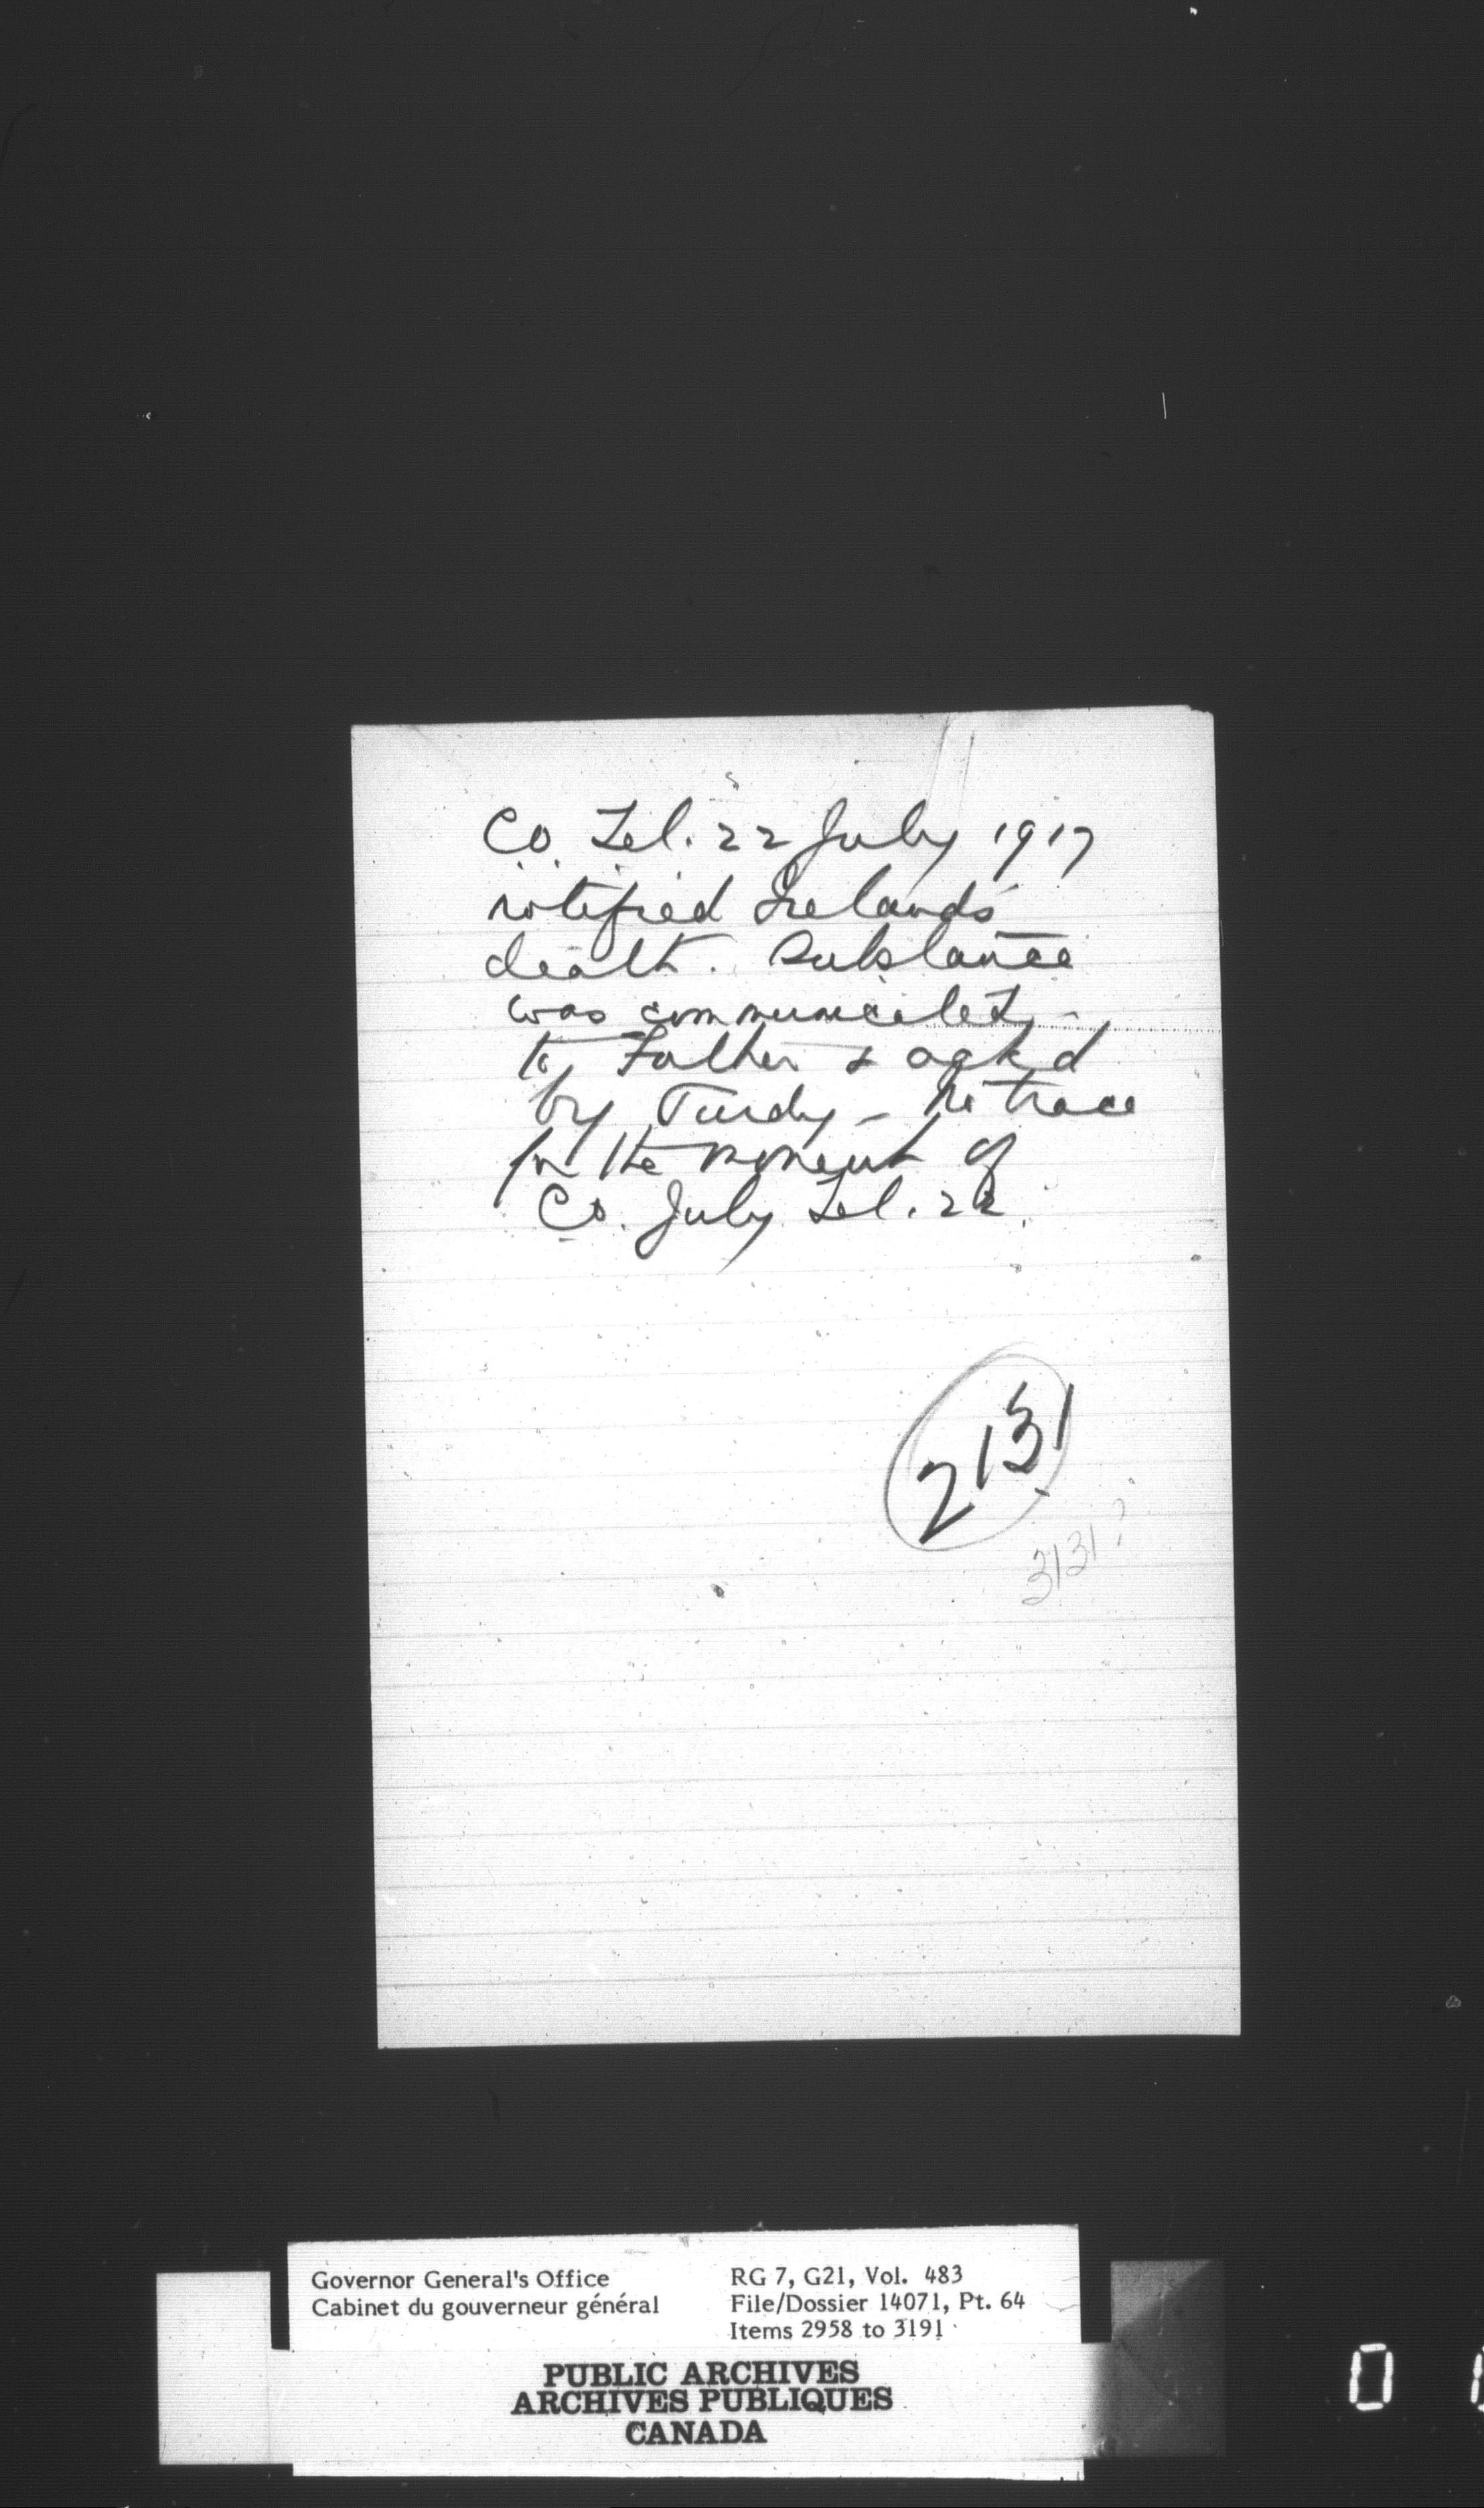 C.O. Tel. 22 July 1917
notified Ireland's
death. Substance
was communicated
to Father & ack'd
by Purdy - No trace
for the moment of
C.O. July Tel. 22.
2131
3131?
Governor General's Office
Cabinet du gouverneur général
RG 7, G21, Vol. 483
File/Dossier 14071, Pt. 64
Items 2958 to 3191
PUBLIC ARCHIVES
ARCHIVES PUBLIQUES
CANADA
0